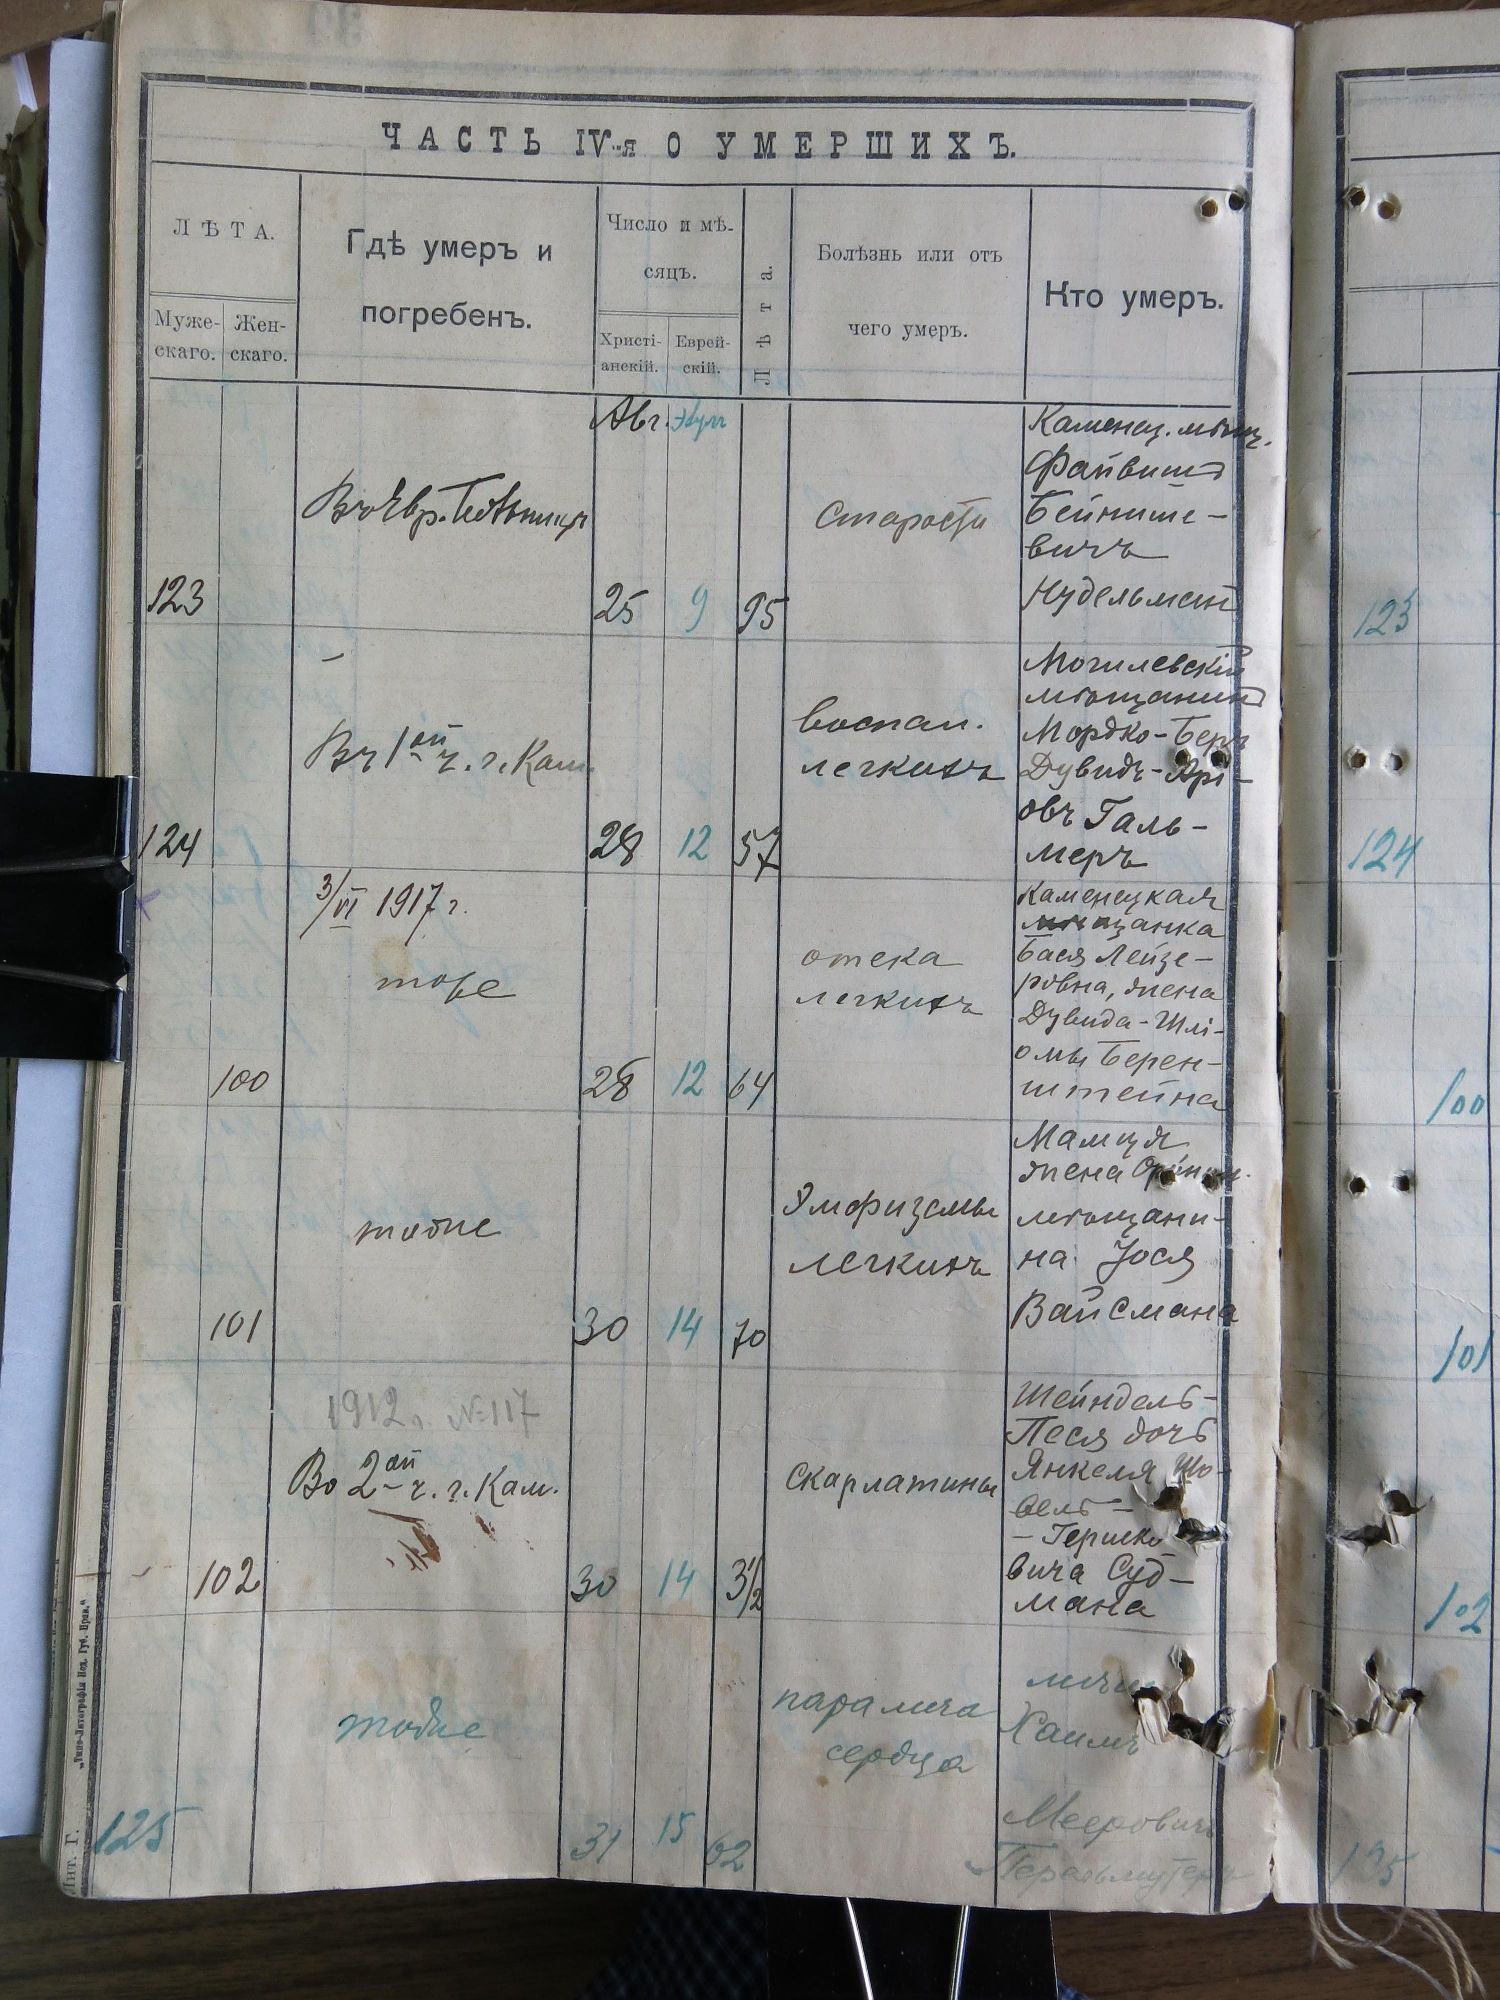 ЧАСТЬ IV-я О УМЕРШИХЪ.
ЛѢТА.
Муже-
скаго.
Жен-
скаго.
Гдѣ умеръ и
погребенъ.
Число и мѣ-
сяцъ.
Христі-
анскій.
Еврей-
скій.
Лѣта.
Болѣзнь или отъ
чего умеръ.
Кто умеръ.
Авг.
123
25
9
95
старости
Каменец. мѣщ.
Файвишъ
Бейнише-
вичъ
Нудельманъ
123
124
Въ 1ой ч. г. Кам.
28
12
57
воспал.
легкихъ
Могилевскій
мѣщанинъ
Мордко-Беръ
Дувидъ-Арі-
овъ Галь-
меръ
124
3/VI 1917 г.
тоже
100
28
12
64
отека
легкихъ
Каменецкая
мѣщанка
Бася Лейзе-
ровна, жена
Дувида-Шлі-
омы Берен-
штейна
100
тоже
101
30
14
70
Эмфиземы
легкихъ
Мамця
жена
мѣщани-
на Іося
Вайсмана
101
1912 г. №117
Во 2ой ч. г. Кам.
102
30
14
3 1/2
скарлатины
Шейндель-
Песя дочь
Янкеля Шо-
вель-
-Гершко
вича Суд-
мана
102
тоже
125
31
15
62
паралича
сердца
Хаимъ
Мееровичъ
Перельмутеръ
125
Лит. Г.